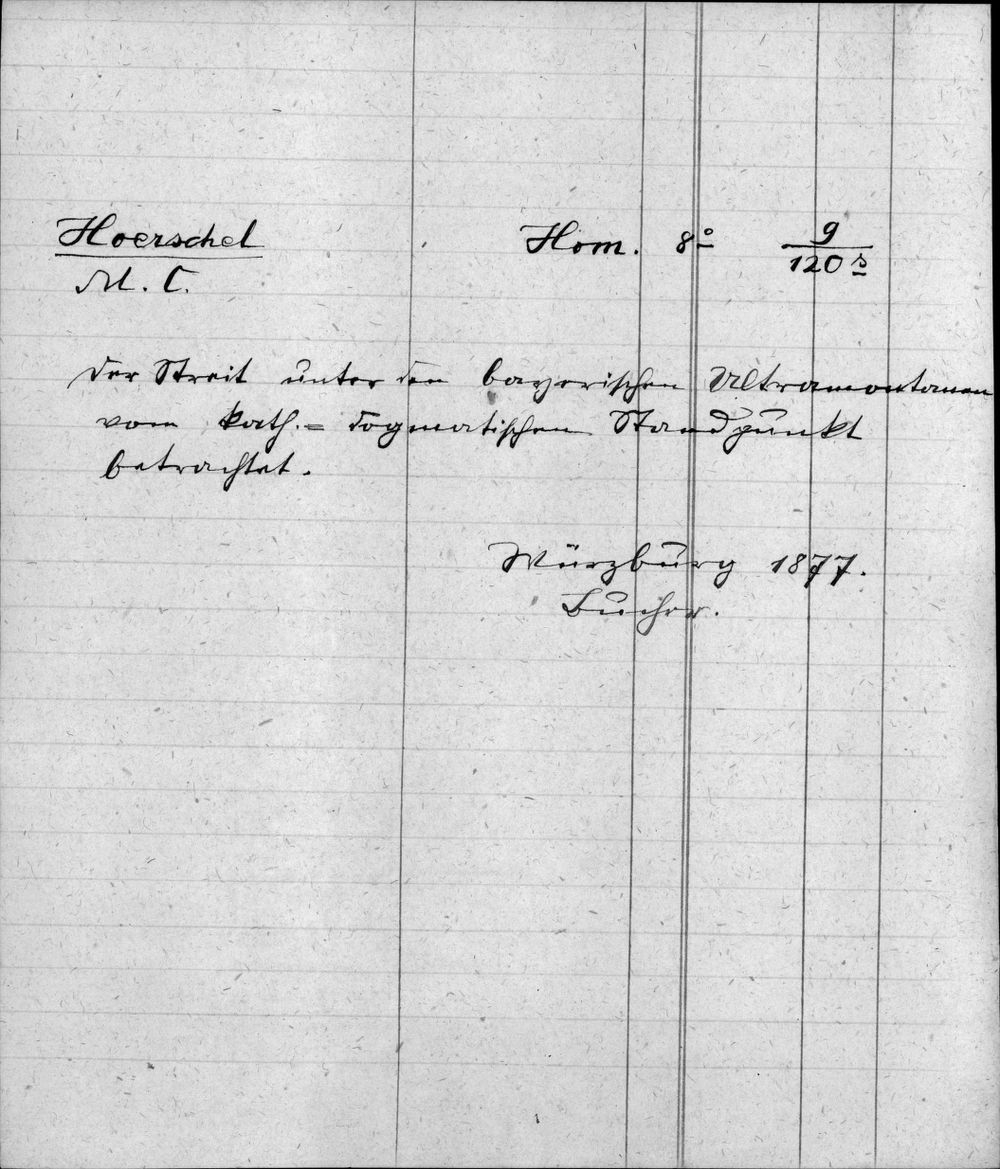 Hoerschel Hom. 8° 9/120 s
M. C.
Der Streit unter den bayerischen Ultramontanen
vom kath.= dogmatischen Standpunkt
betrachtet.
Würzburg 1877.
Bucher.